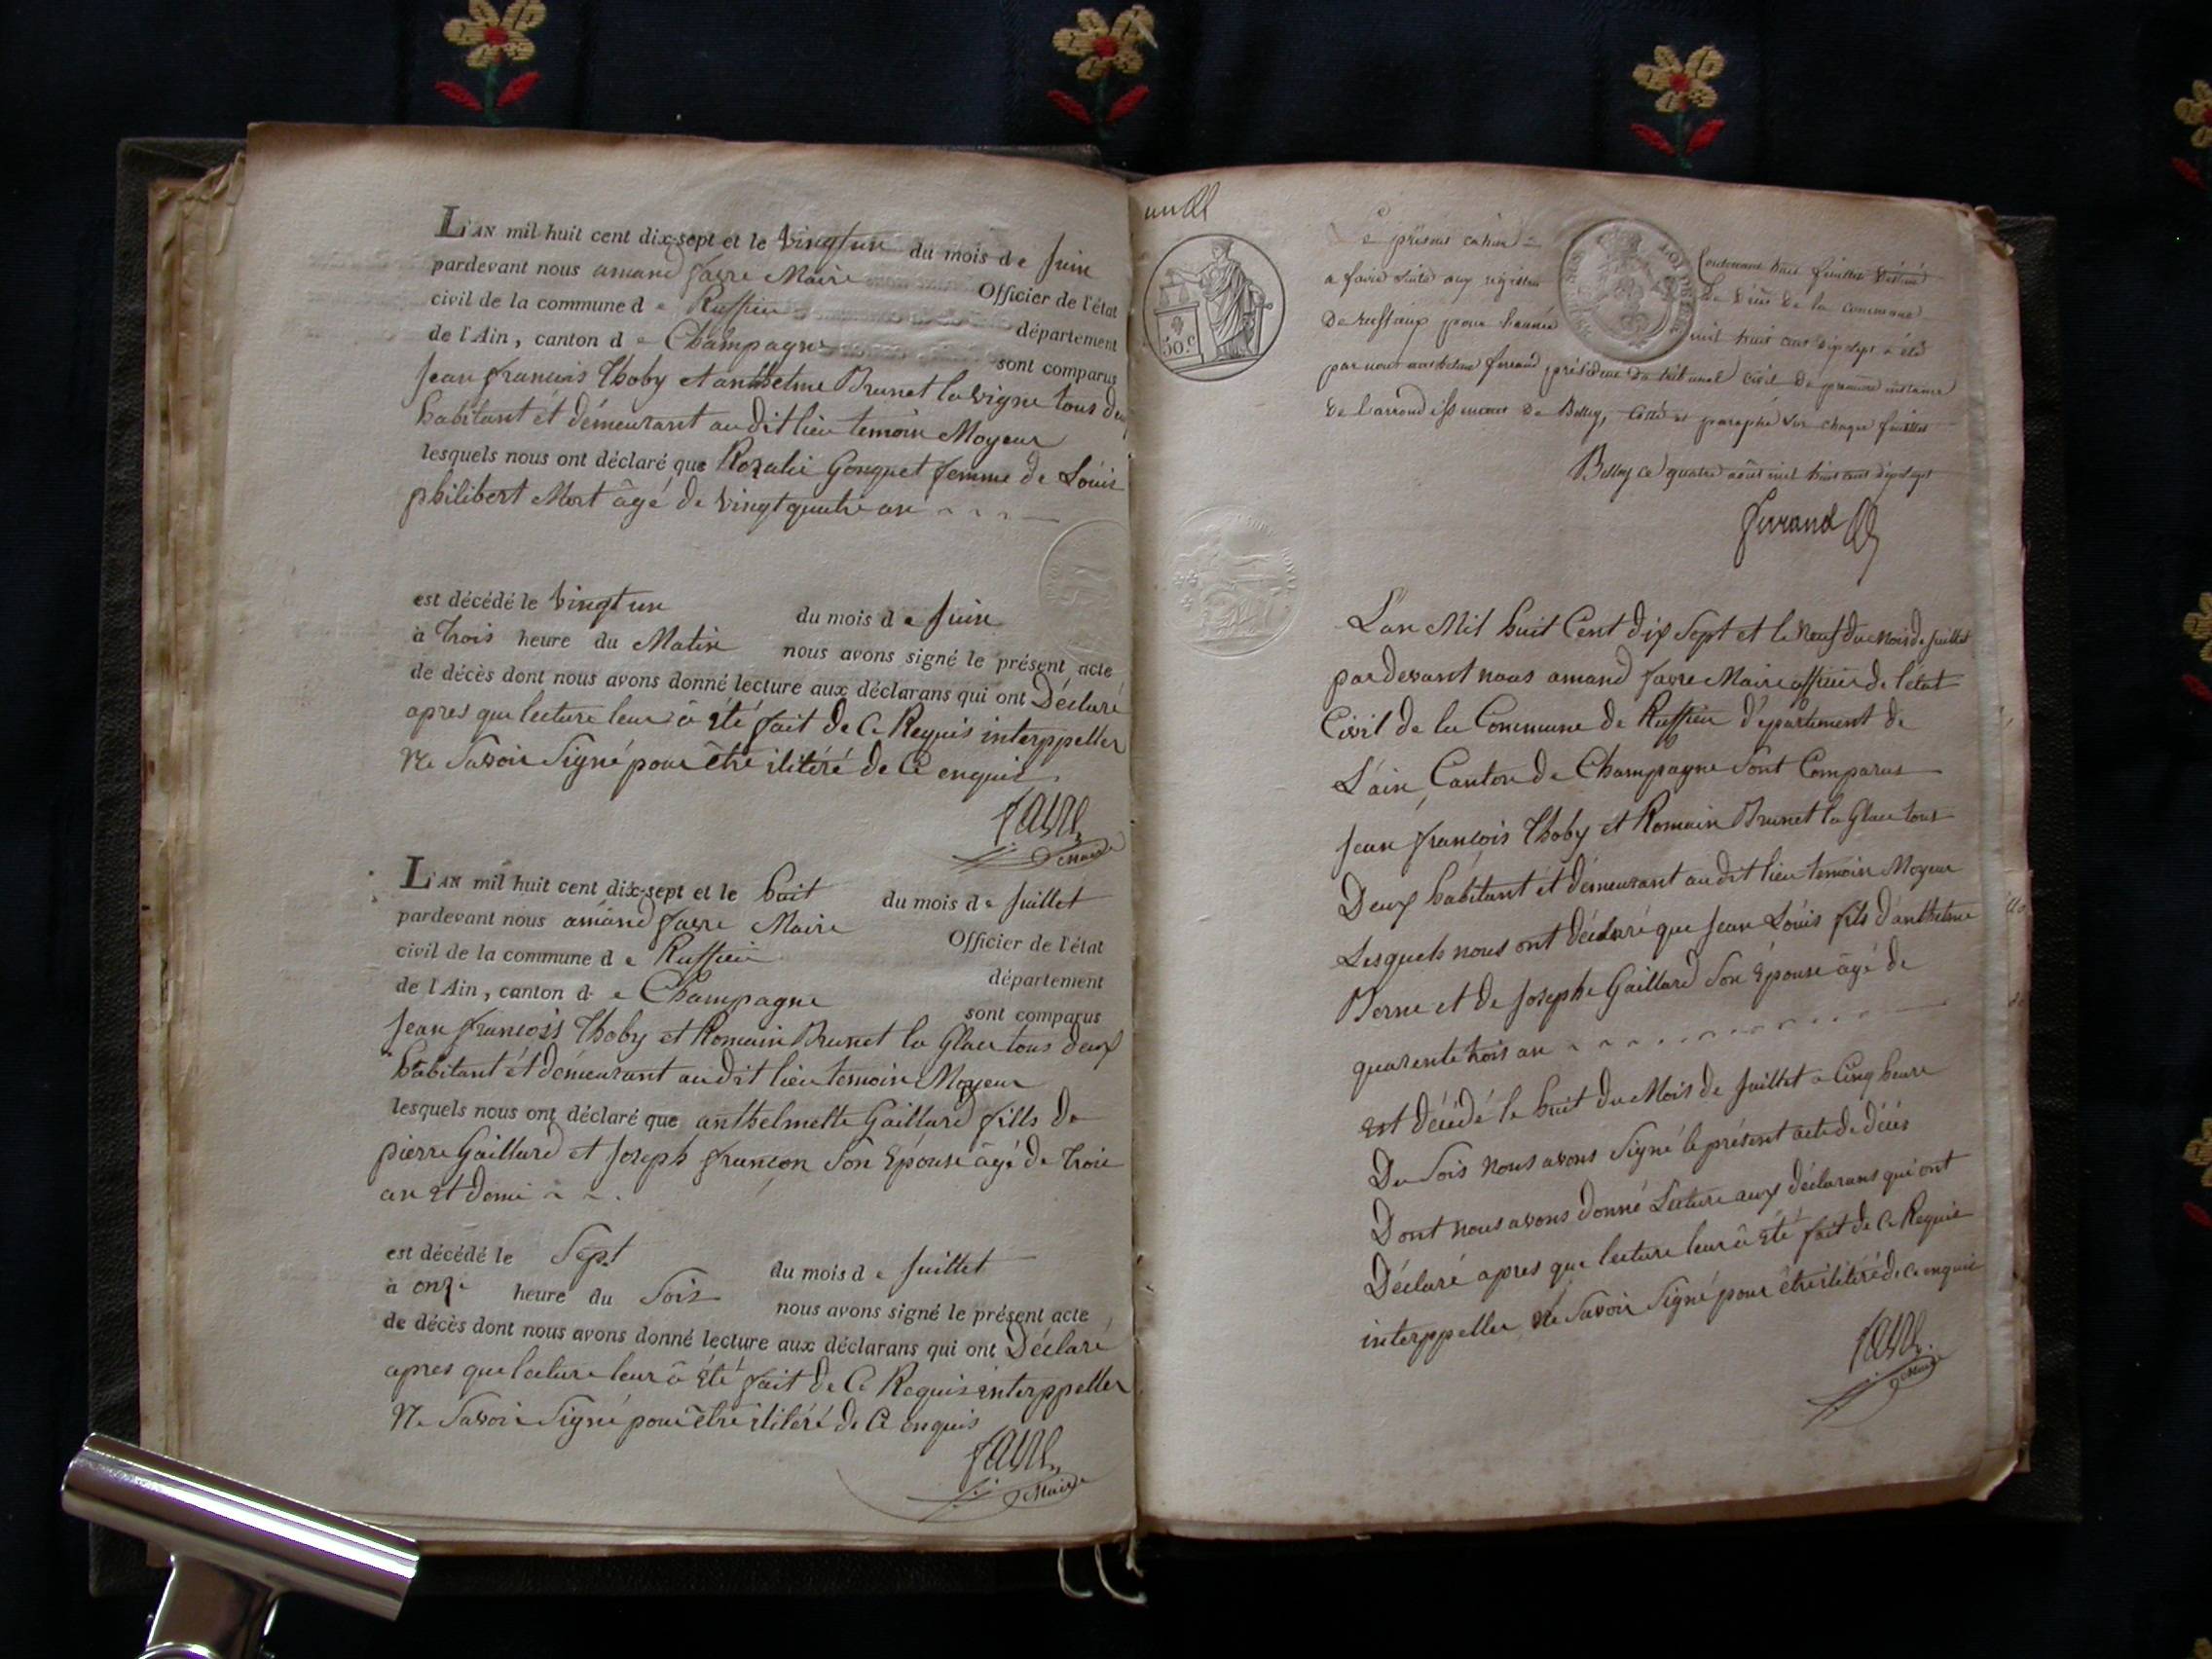 L'AN mil huit cent dix-sept et le vingt un du mois de Juin
pardevant nous amand favre Maire Officier de l'état
civil de la commune de Ruffieu département
de l'Ain, canton de Champagne sont comparus
Jean françois Thoby et anthelme Brunet lavigne tous deu
habitant et démeurant audit lieu temoin Moyeur
lesquels nous ont déclaré que Rozalie Gonguet femme de Loúis
philibert Mort âgé de vingt quatre an
est décédé le vingt un du mois de Juin
à trois heure du Matin nous avons signé le présent acte
de décès dont nous avons donné lecture aux déclarans qui ont Déclaré
apres que lecture leur â été fait de Ce Requis interppeller
Ne Savoir Signé pour être ilitéré de Ce enquis
favre
Maire
L'AN mil huit cent dix-sept et le huit du mois de Juillet
pardevant nous amand favre Maire Officier de l'état
civil de la commune de Ruffieu département
de l'Ain, canton de Champagne sont comparus
Jean françois Thoby et Romain Brunet la Glace tous deux
habitant et démeurant audit lieu temoin Moyeur
lesquels nous ont déclaré que anthelmette Gaillard fills de
pierre Gaillard et Joseph françon Son Epouse âgé de trois
an et demi
est décédé le Sept du mois de Juillet
à onze heure du Soir nous avons signé le présent acte
de décès dont nous avons donné lecture aux déclarans qui ont Déclaré
apres que lecture leur â été fait de Ce Requis interppeller
Ne Savoir Signé pour être ilitéré de Ce enquis
favre
Maire
50 c.
Le présent cahier contenant huit feuillets destiné
a faire suite aux registres de décès de la commune
de ruffieux pour l'année mil huit cent dix sept a été
par nous anthelme ferrand président du tribunal civil de première instance
de l'arrondissement de Belley, coté et paraphé sur chaque feuillet
Belley ce quatre août mil huit cent dix sept
ferrand
L'an Mil huit Cent dix Sept et le Neuf du mois de juillet
pardevant nous amand favre Maire officier de l'état
Civil de la Commune de Ruffieu département de
L'ain, Canton de Champagne Sont Comparus
Jean françois Thoby et Romain Brunet la Glace tous
Deux habitant et démeurant audit lieu temoin Moyeur
Lesquels nous ont déclaré que Jean Loúis fils d'anthelme
Berne et de Josephe Gaillard Son Epouse âgé de
quarente trois an
est décédé le huit du Mois de Juillet a Cinq heure
Du Soir Nous avons Signé le présent acte de décès
Dont nous avons donné Lecture aux déclarans qui ont
Déclaré apres que lecture leur â été fait de Ce Requis
interppeller Ne Savoir Signé pour être ilitéré de Ce enquis
favre
Maire